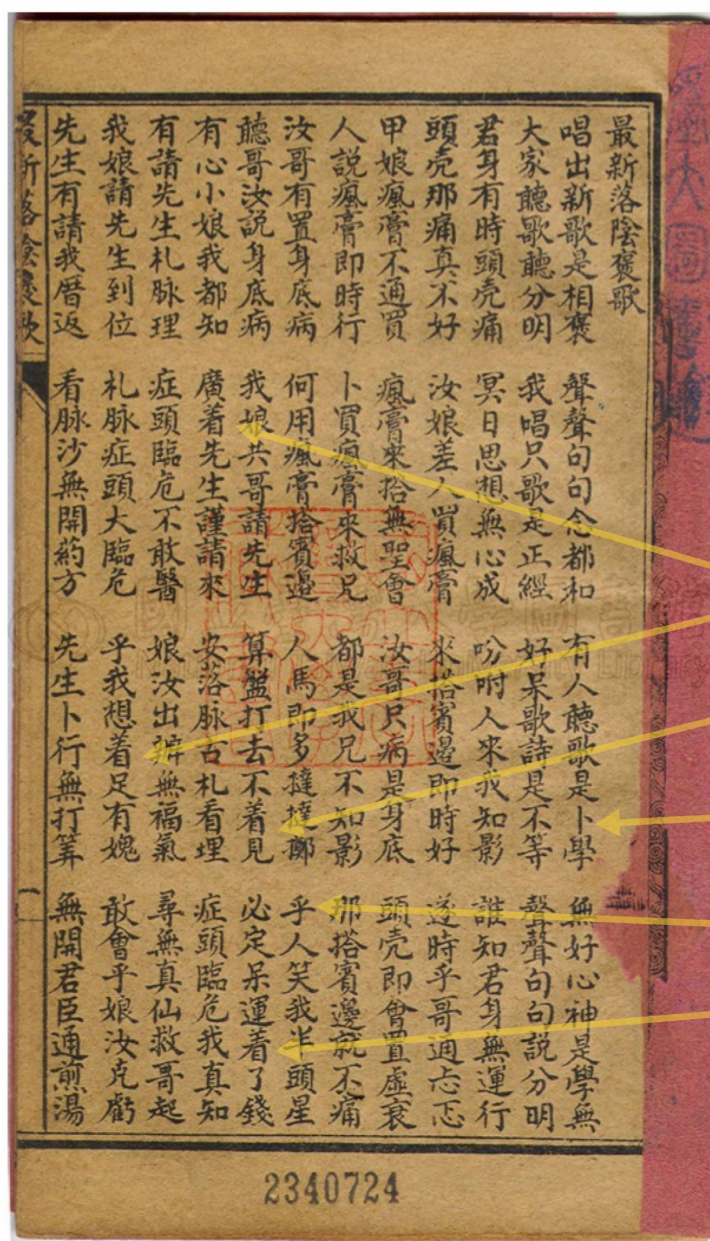 最新落陰褒歌
唱出新歌是相褒 聲聲句句念都和 有人聽歌是卜學 無好心神是學無
大家聽歌聽分明 我唱只歌是正經 好呆歌詩是不等 聲聲句句說分明
君身有時頭壳痛 冥日思想無心成 吩咐人來我知影 誰知君身無運行
頭壳那痛真不好 汝娘差人買瘋膏 來搭賓邊即時好 遂時乎哥通忐忑
甲娘瘋膏不通買 瘋膏來搭無聖會 汝哥只病是身底 頭壳即會置虛衰
人說瘋膏即時行 卜買瘋膏來救兄 都是我兄不知影 那搭賓邊就不痛
汝哥有置身底病 何用瘋膏搭賓邊 人馬即多撻撻鄭 乎人笑我半頭星
聽哥汝說身底病 我娘共哥請先生 算盤打去不着見 必定呆運着了錢
有心小娘我都知 廣着先生謹請來 安落脉古札看埋 症頭臨危我真知
有請先生札脉理 症頭臨危不敢醫 娘汝出辦無福氣 尋無真仙救哥起
我娘請先生到位 札脉症頭大臨危 乎我想着足有媿 敢會乎娘汝克虧
先生有請我厝返 看脉沙無開葯方 先生卜行無打算 無開君臣通煎湯
最新落陰褒歌
一
2340724